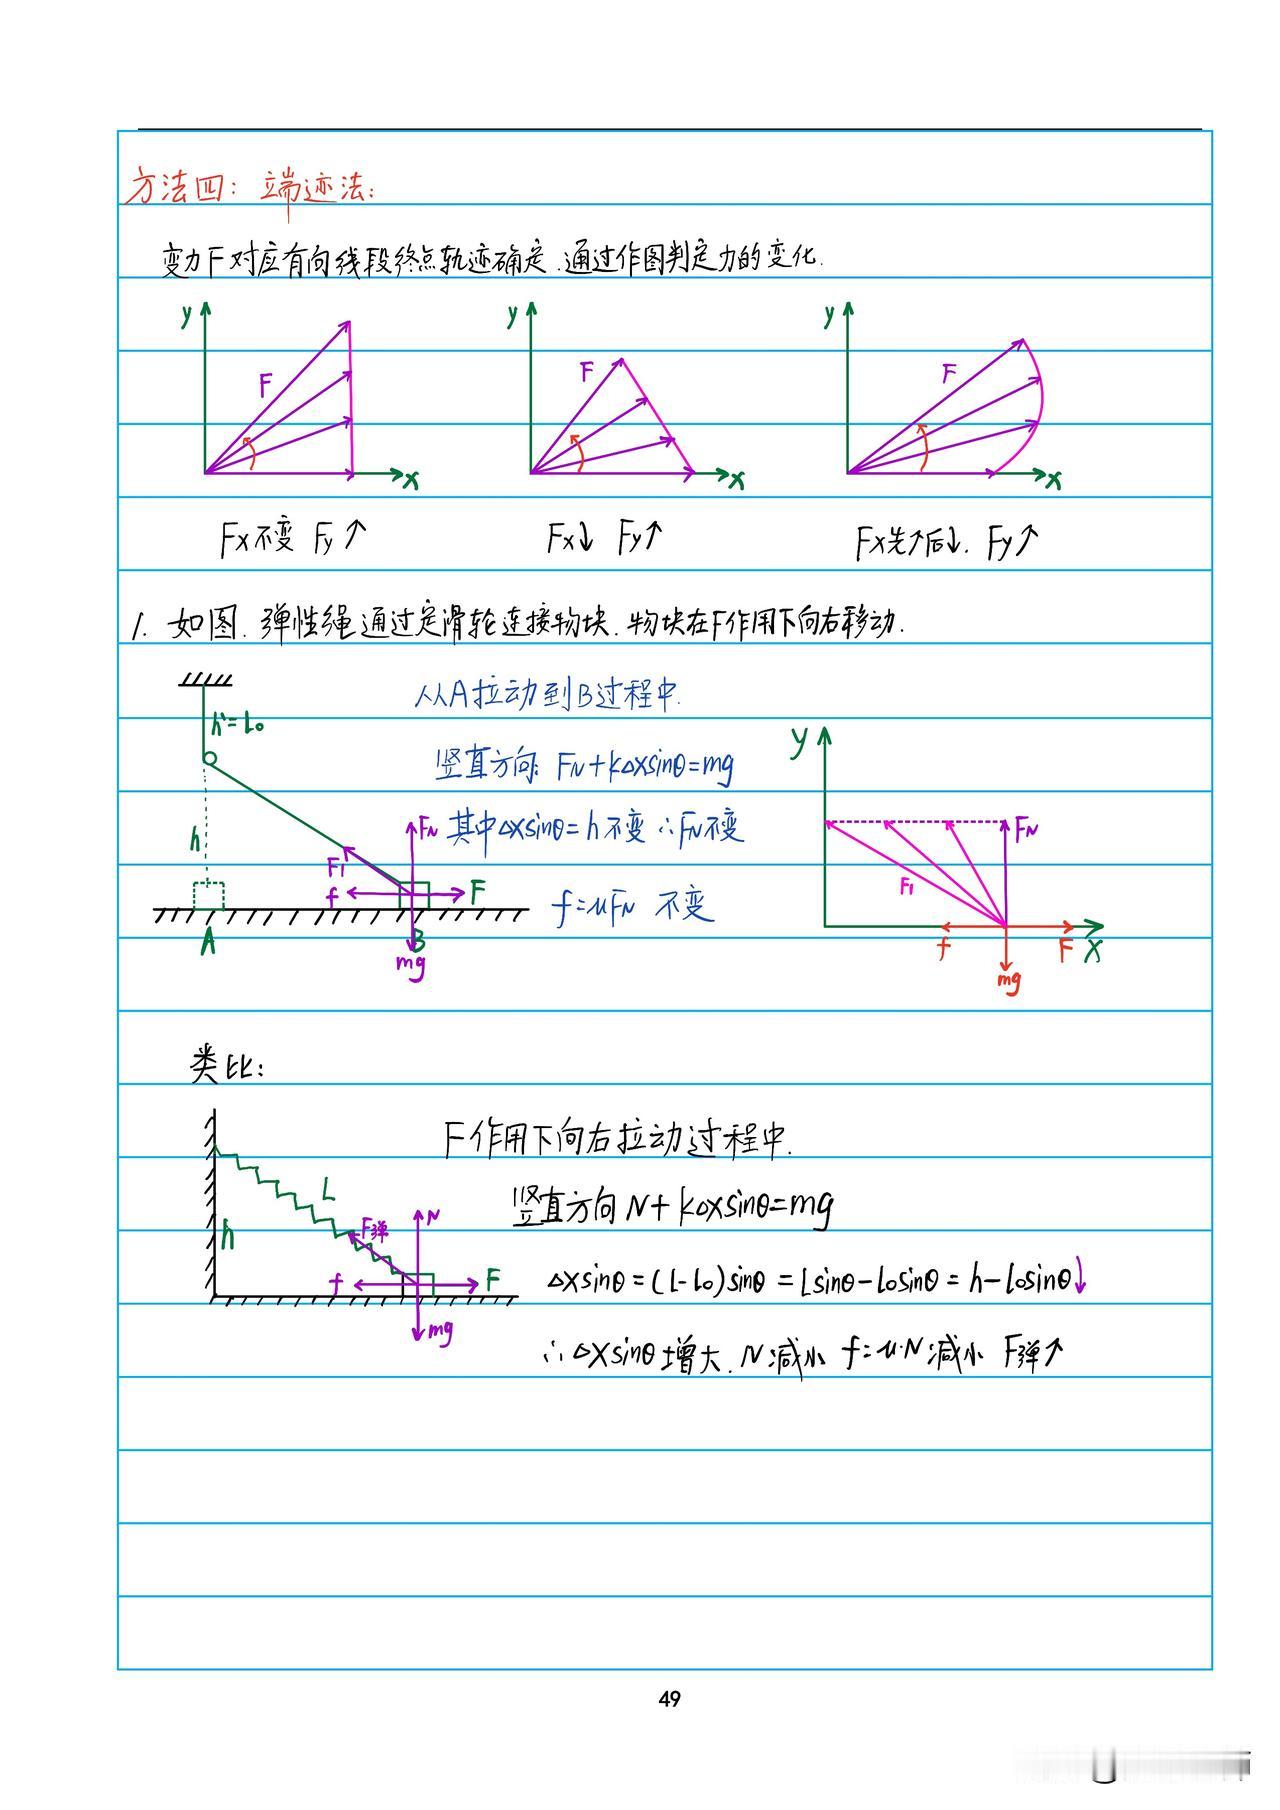 方法四：端迹法：
变力F对应有向线段终点轨迹确定．通过作图判定力的变化．
y F x
y F x
y F x
Fx不变 Fy↑
Fx↓ Fy↑
Fx先↑后↓. Fy↑
1. 如图．弹性绳通过定滑轮连接物块．物块在F作用下向右移动．
h'=L₀
h
F₁
f
FN
F
A
B
mg
从A拉动到B过程中.
竖直方向: FN+kΔxsinθ=mg
其中Δxsinθ=h不变 ∴FN不变
f=μFN 不变
y
FN
F₁
f
F
x
mg
类比：
L
h
F弹
N
f
F
mg
F作用下向右拉动过程中.
竖直方向 N+kΔxsinθ=mg
Δxsinθ=(L-L₀)sinθ=Lsinθ-L₀sinθ=h-L₀sinθ↓
∴Δxsinθ增大. N减小 f=μ·N减小 F弹↑
49